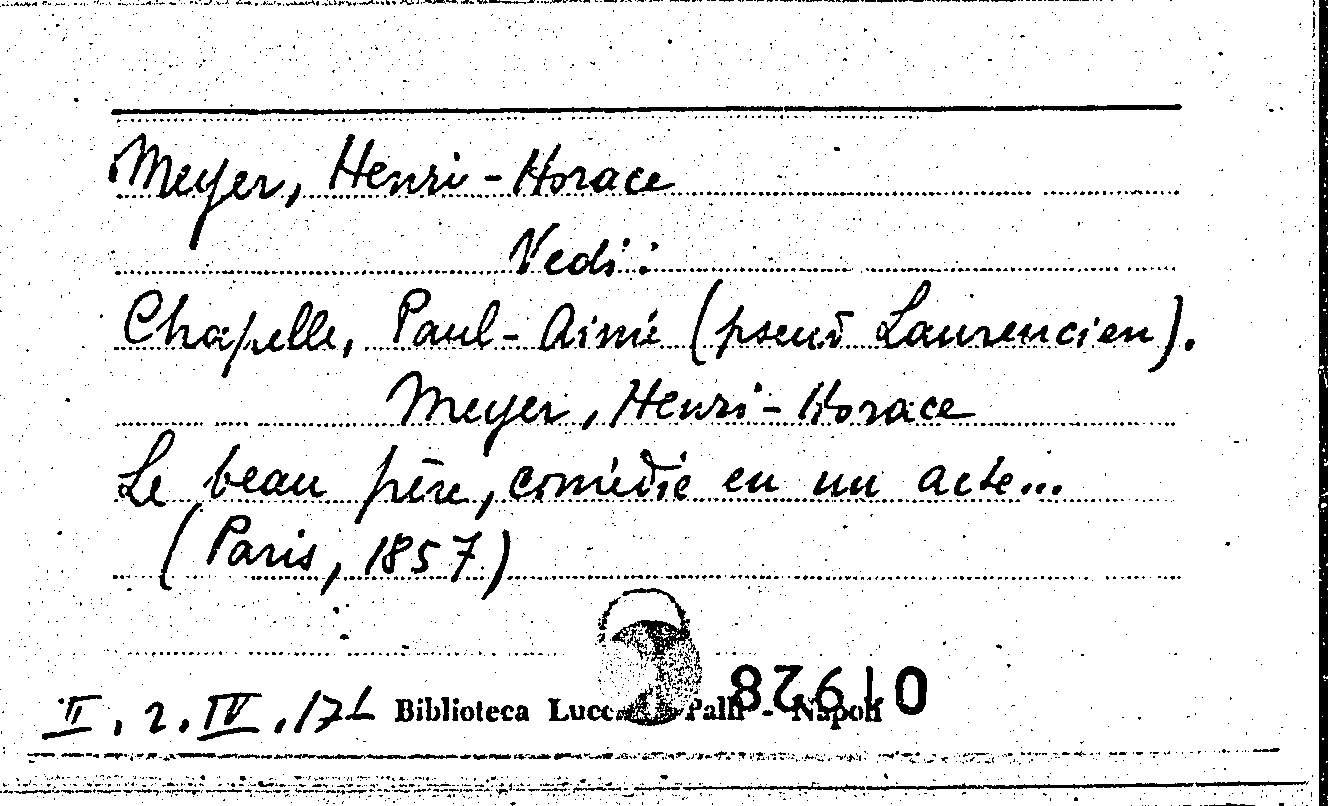 Meyer, Henri-Horace
Vedi:
Chapelle, Paul-Aimé (pseud Laurencien).
Meyer, Henri-Horace
Le beau père, comédie en un acte...
(Paris, 1857)
II. 2. IV. Biblioteca Palli - Napoli